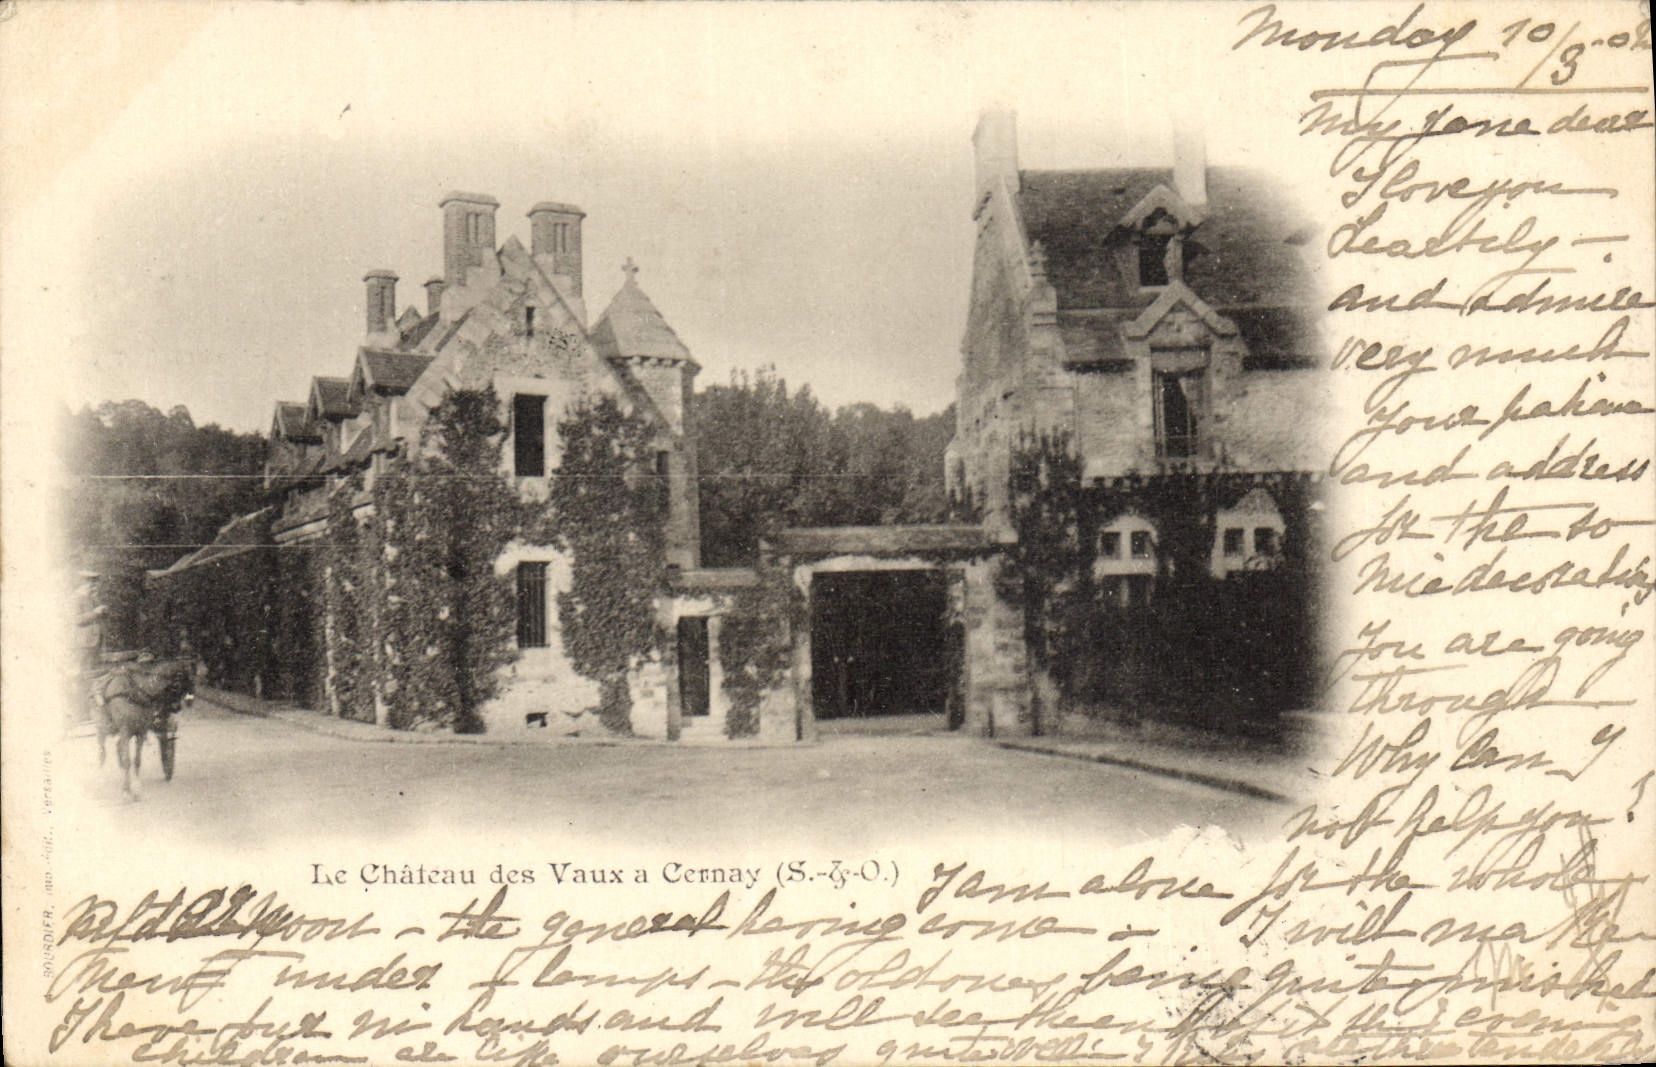 Monday 10/3-02
My Jane dear
I love you
heartily -
and admire
very much
your patience
and address
for the so
nice decorating
You are going
through
Why can I
not help you?
Le Château des Vaux a Cernay (S.-&-O.)
I am alone for the whole
afternoon - the general having come - I will make
new under - lamps - the old ones being quite finished
I have four in hands and will see them this evening
children are like ourselves quite well
BOURDIER, IMP.-PHOT., Versailles